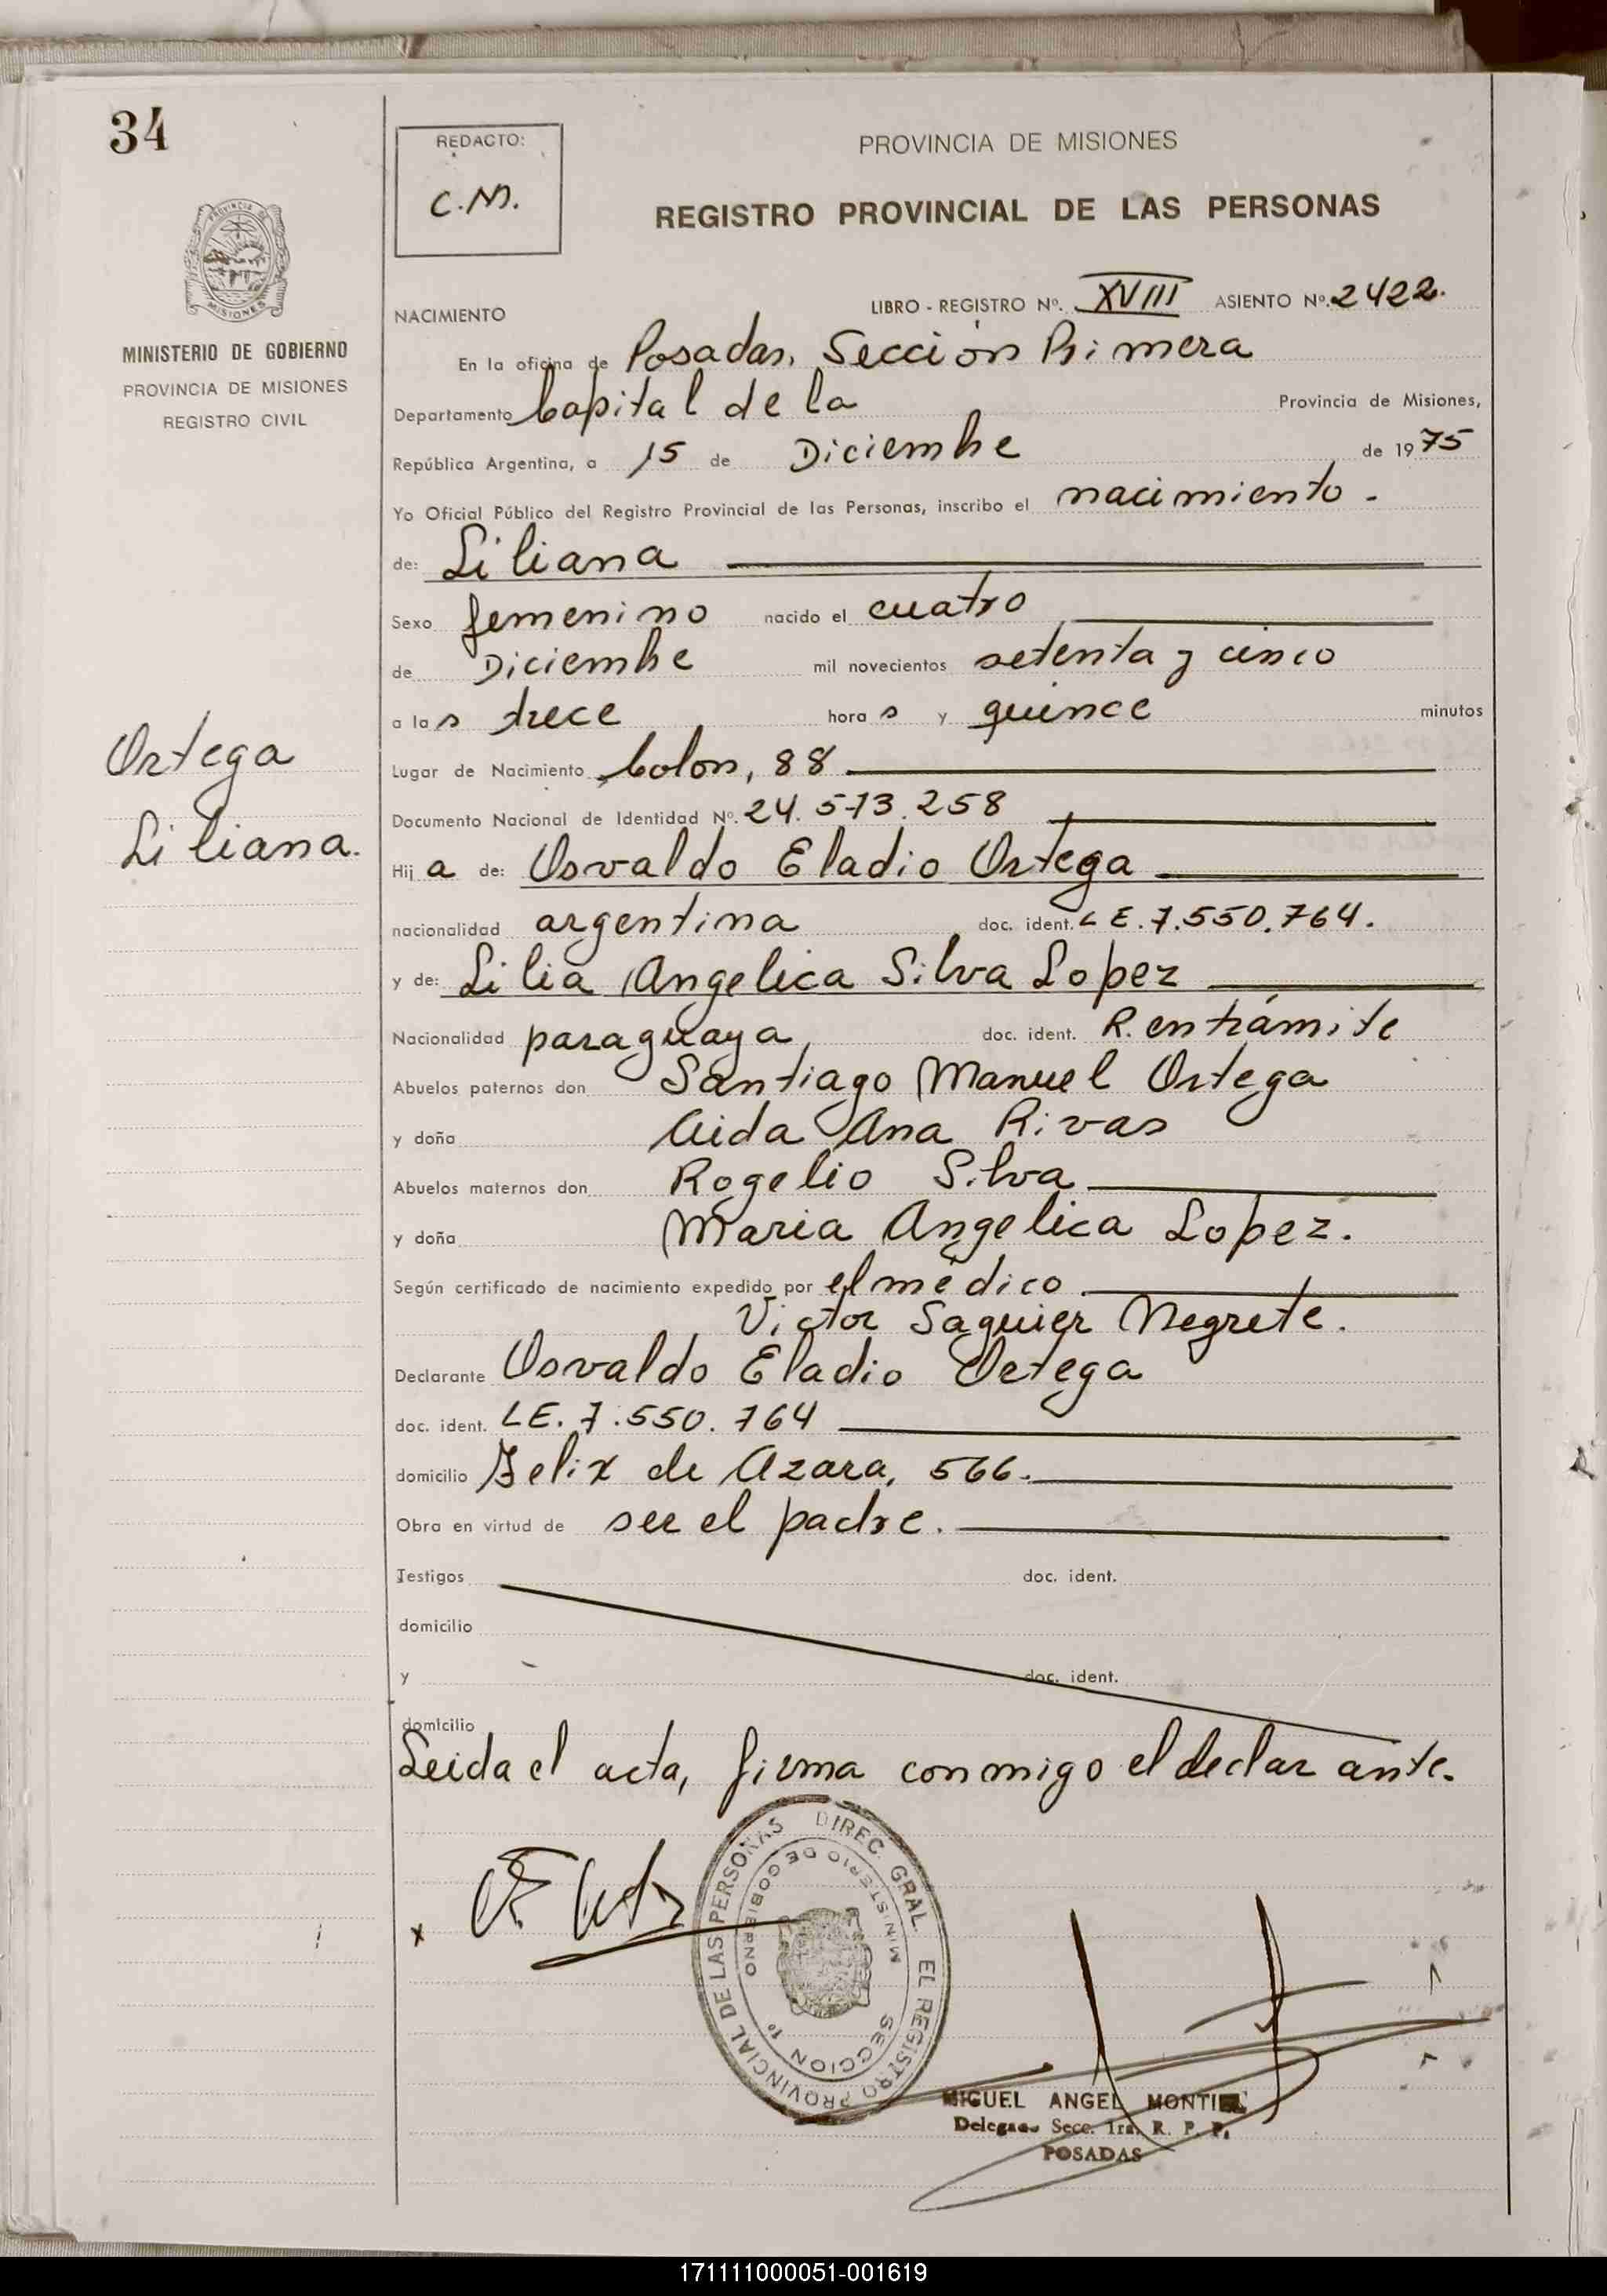 34
REDACTO:
C.M.
PROVINCIA DE MISIONES
REGISTRO PROVINCIAL DE LAS PERSONAS
PROVINCIA DE
MISIONES
MINISTERIO DE GOBIERNO
PROVINCIA DE MISIONES
REGISTRO CIVIL
NACIMIENTO LIBRO - REGISTRO Nº. XVIII ASIENTO Nº. 2422.
En la oficina de Posadas, Sección Primera
Departamento Capital de la Provincia de Misiones,
República Argentina, a 15 de Diciembre de 1975
Yo Oficial Público del Registro Provincial de las Personas, inscribo el nacimiento.
de: Liliana
Sexo femenino nacido el cuatro
de Diciembre mil novecientos setenta y cinco
a las trece horas y quince minutos
Lugar de Nacimiento Colon, 88
Documento Nacional de Identidad Nº. 24.573.258
Ortega
Liliana.
Hija de: Osvaldo Eladio Ortega
nacionalidad argentina doc. ident. LE.7.550.764.
y de: Lilia Angelica Silva Lopez
Nacionalidad paraguaya, doc. ident. R. en trámite
Abuelos paternos don Santiago Manuel Ortega
y doña Aida Ana Rivas
Abuelos maternos don Rogelio Silva
y doña Maria Angelica Lopez.
Según certificado de nacimiento expedido por el médico
Victor Saguier Negrete.
Declarante Osvaldo Eladio Ortega
doc. ident. LE. 7.550.764
domicilio Felix de Azara, 566.
Obra en virtud de ser el padre.
Testigos doc. ident.
domicilio
y doc. ident.
domicilio
Leida el acta, firma conmigo el declarante.
DIREC. GRAL. EL REGISTRO PROVINCIAL DE LAS PERSONAS
MINISTERIO DE GOBIERNO
SECCION 1º
MIGUEL ANGEL MONTIEL
Delegado Secc. 1ra. R. P. P.
POSADAS
171111000051-001619